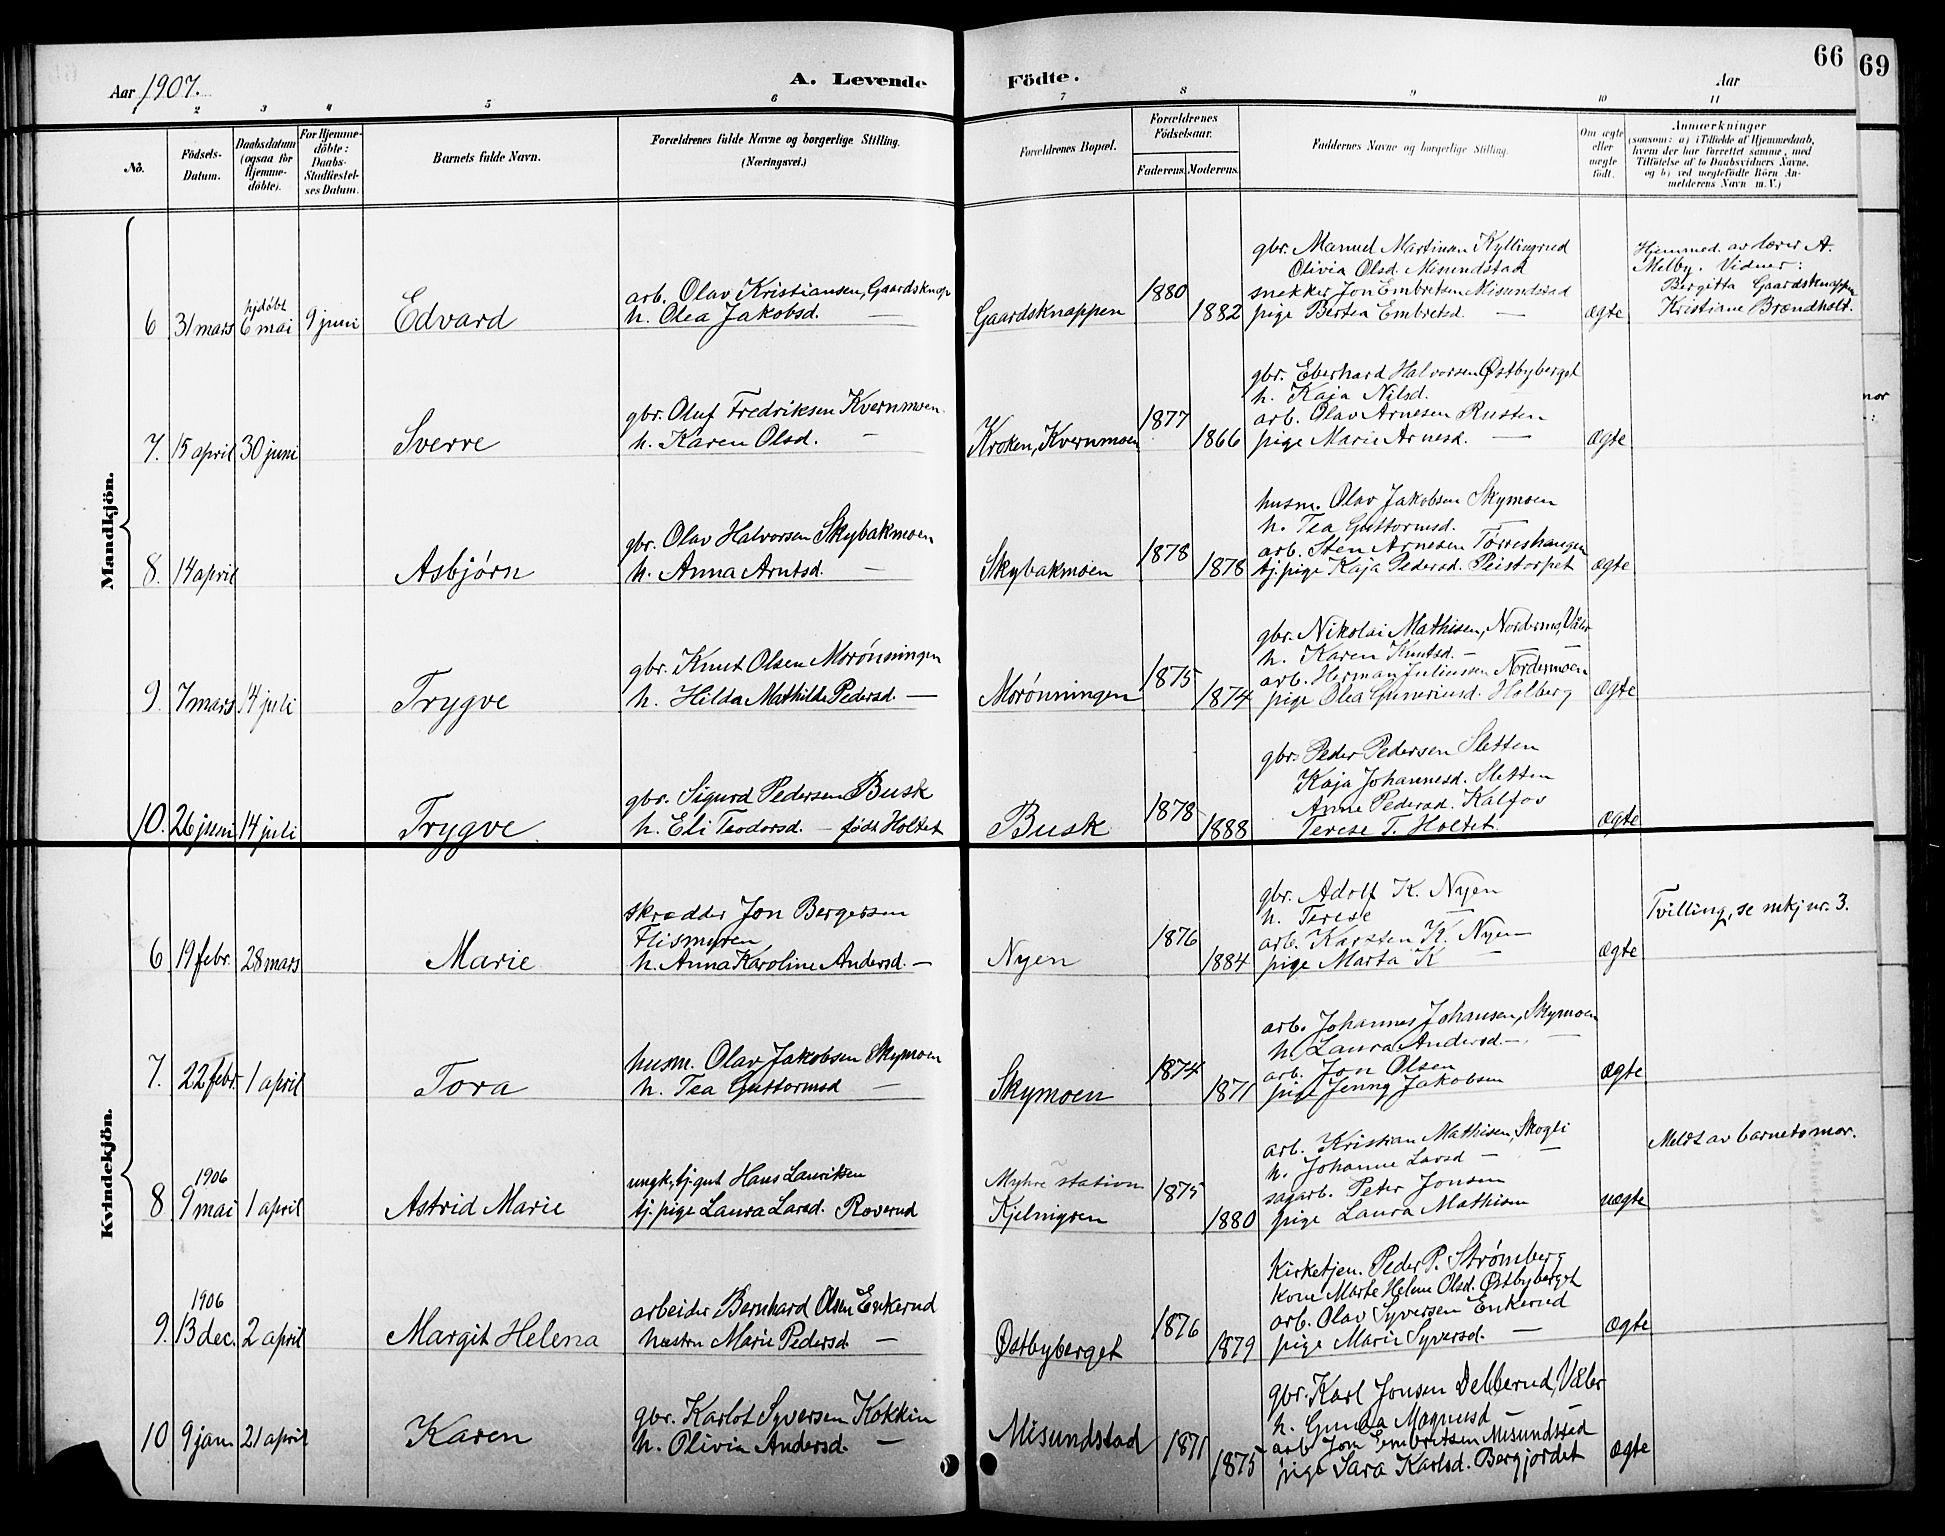 66
69
Aar 1907.
A. Levende Födte.
Aar
1 2 3 4 5 6 7 8 9 10 11
No.
Födsels-Datum.
Daabsdatum (ogsaa for Hjemme-döbte).
For Hjemme-döbte: Daabs-Stadfæstel-ses Datum.
Barnets fulde Navn.
Forældrenes fulde Navne og borgerlige Stilling. (Næringsvei.)
Forældrenes Bopæl.
Forældrenes Födselsaar.
Faderens. Moderens.
Faddernes Navne og borgerlige Stilling.
Om ægte eller uægte födt.
Anmærkninger
(saasom: a) i Tilfælde af Hjemmedaab, hvem der har forrettet samme, med Tilföielse af to Daabsvidners Navne, og b) ved uægtefödte Börn An-melderens Navn m. V.)
Mandkjön.
6 31 mars hjdøbt 6 mai 9 juni Edvard
arb. Olav Kristiansen, Gaardsknap
h. Olea Jakobsd. —
Gaardsknappen 1880 1882
gbr. Manuel Martinsen Kyllingrud
Olivia Olsd. Misundstad
snekker Jon Embretsen Misundstad
pige Bertea Embretsd. —
ægte
Hjemmed. av lærer A.
Melby. Vidner:
Bergitta Gaardsknappen
Kristiane Brændholt.
7. 15 april 30 juni Sverre
gbr. Oluf Fredriksen Kvernmoen
h. Karen Olsd. —
Kroken, Kvernmoen 1877 1866
gbr. Eberhard Halvorsen Østbyberget
h. Kaja Nilsd.
arb. Olav Arnesen Rusten
pige Marie Arnesd. —
ægte
8. 14 april Asbjørn
gbr. Olav Halvorsen Skybakmoen
h. Anna Arntsd. —
Skybakmoen 1878 1878
husm. Olav Jakobsen Skymoen
h. Tea Guttormsd.
arb. Sten Arnesen Tørreshaugen
tj. pige Kaja Pedersd. Peistorpet
ægte
9. 7 mars 14 juli Trygve
gbr. Knut Olsen Morønningen
h. Hilda Mathilde Pedersd. —
Morønningen 1875 1874
gbr. Nikolai Mathisen, Nordermo, Våler
h. Karen Knutsd. — —
arb. Herman Juliussen Nordermoen
pige Olea Guneriusd. Holberg
ægte
10. 26 juni 14 juli Trygve.
gbr. Sigurd Pedersen Busk
h. Eli Teodorsd. — født Holtet
Busk 1878 1888
gbr. Peder Pedersen Sletten
Kaja Johannesd. Sletten
Anne Pedersd. Kalfos
Terese T. Holtet.
ægte
Kvindekjön.
6 19 febr. 28 mars Marie
skrædder Jon Bergersen
Flismyren
h. Anna Karoline Andersd. —
Nyen 1876 1884
gbr. Adolf K. Nyen
h. Terese —
arb. Karsten K. Nyen
pige Marta K —
ægte
Tvilling, se mkj nr. 3.
7. 22 febr. 1 april Tora
husm. Olav Jakobsen Skymoen
h. Tea Guttormsd —
Skymoen 1874 1871
arb. Johannes Johansen, Skymoen
h. Laura Andersd. — —
arb. Jon Olsen
pige Jenny Jakobsen
ægte
8 1906 9 mai 1 april Astrid Marie
ungk. tj. gut Hans Lauritsen
tj. pige Laura Larsd. Roverud
Myhre station
Kjelmyren 1875 1880
arb. Kristian Mathisen, Skogli
h. Johanne Larsd — —
sagarb. Peter Jonsen
pige Laura Mathisen
uægte
Meldt av barnets mor.
9. 1906 13 dec. 2 april Margit Helena
arbeider Bernhard Olsen Enkerud
hustru Marie Pedersd. —
Østbyberget 1876 1879
Kirketjen. Peder P. Strømberg
kone Marte Helene Olsd. Østbyberget
arb. Olav Syversen Enkerud
pige Marie Syversd. —
ægte
10 9 jan. 21 april Karen
gbr. Karlot Syversen Kokkin
h. Olivia Andersd. —
Misundstad 1871 1875
gbr. Karl Jonsen Delberud, Våler
h. Gunda Magnusd — —
arb. Jon Embretsen Misundstad
pige Sara Karlsd. Bergjordet
ægte